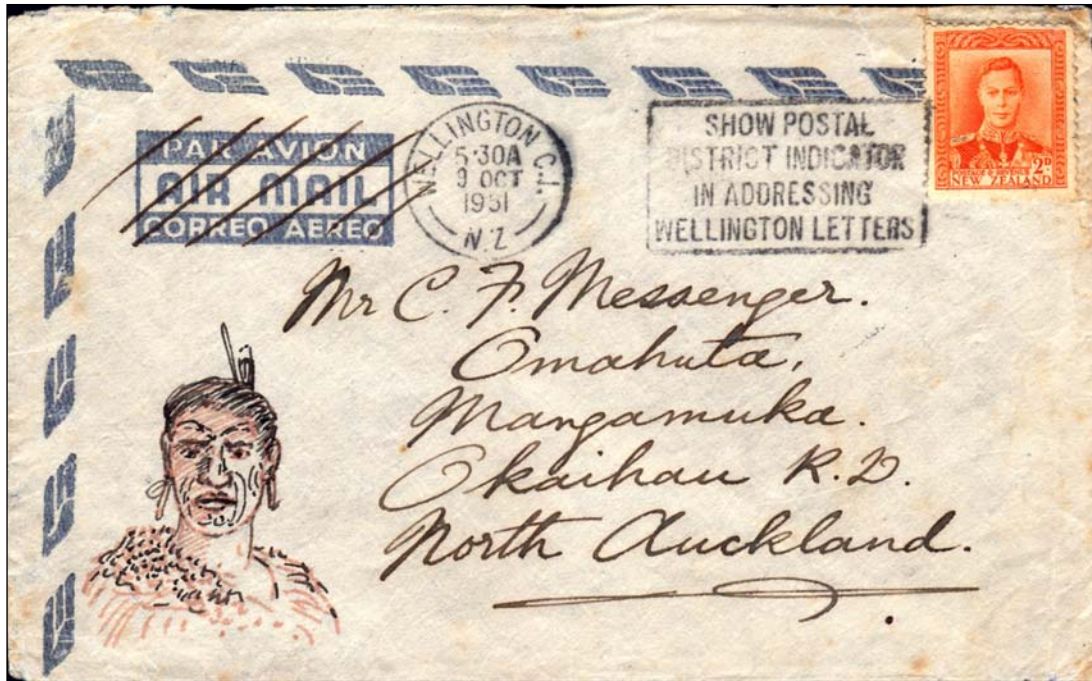 PAR AVION
AIR MAIL
CORREO AEREO
WELLINGTON C.1.
5·30A
9 OCT
1951
N.Z
SHOW POSTAL
DISTRICT INDICATOR
IN ADDRESSING
WELLINGTON LETTERS
2D
NEW ZEALAND
Mr C. F. Messenger.
Omahuta,
Mangamuka.
Okaihau R.D.
North Auckland.